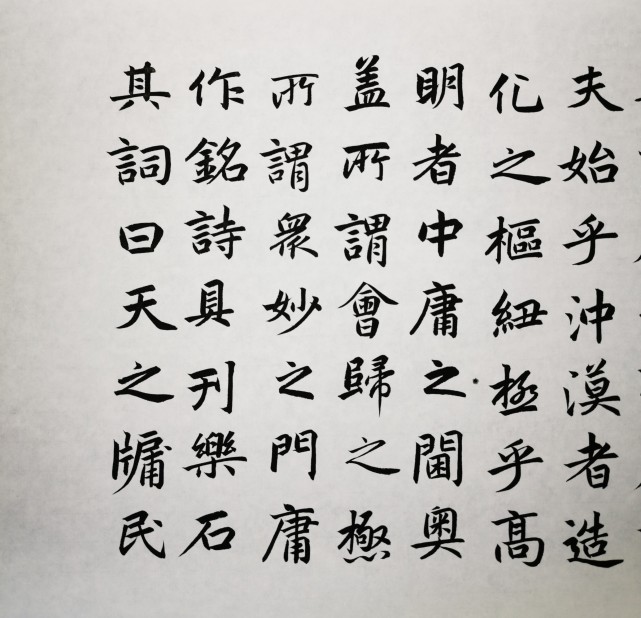 夫始乎沖漠者造
化之樞紐極乎高
明者中庸之閫奧
盖所謂會歸之極
所謂衆妙之門庸
作銘詩具刊樂石
其詞曰天之牖民